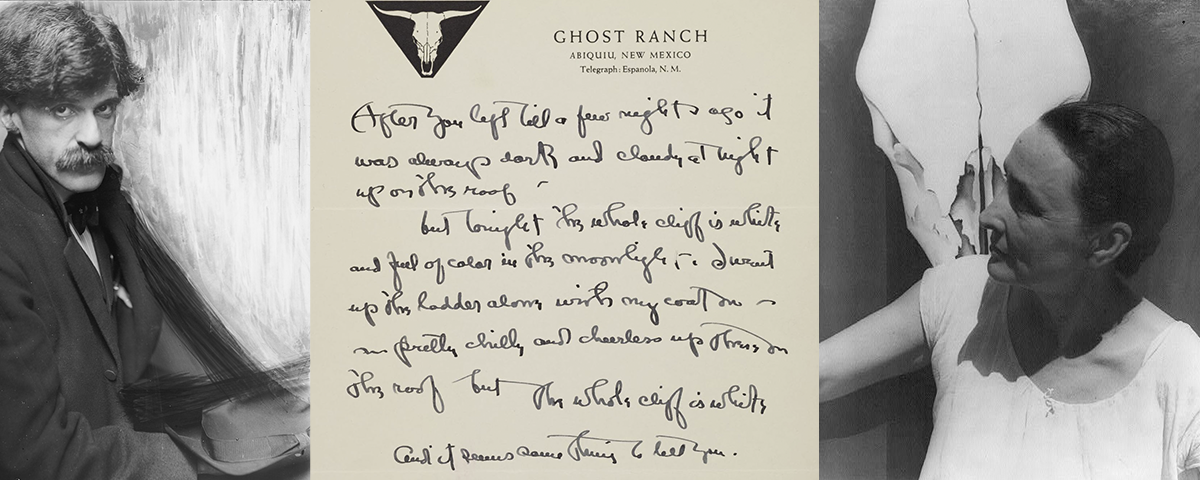 GHOST RANCH
ABIQUIU, NEW MEXICO
Telegraph: Espanola, N. M.
After you left till a few nights ago it
was always dark and cloudy at night
up on the roof –
but tonight the whole cliff is white
and full of color in the moonlight. I went
up the ladder alone with my coat on –
– pretty chilly and cheerless up there on
the roof but the whole cliff is white
And it seems something to tell you.